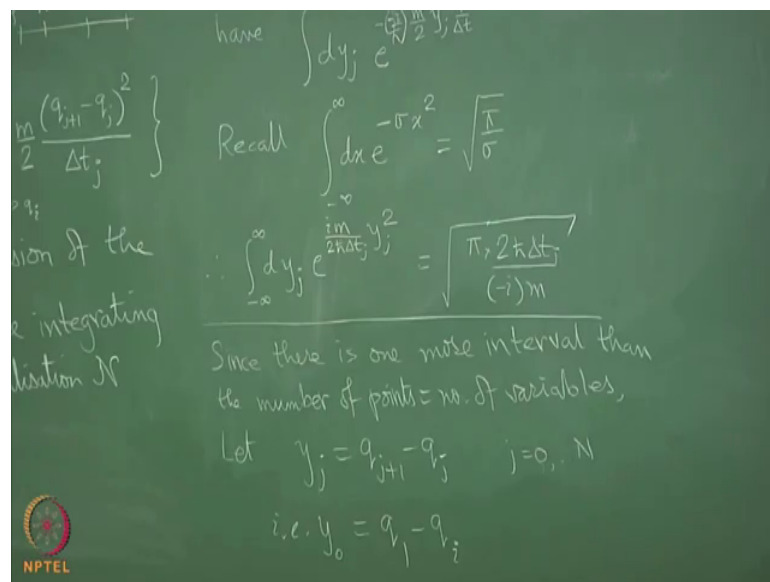 m/2 (q_{j+1} - q_j)^2 / Δt_j }
q_i
sion of the
e integrating
lisation N
have ∫ dy_j e^{-(-i/ħ) m/2 y_j 1/Δt}
Recall ∫_{-∞}^{∞} dx e^{-σx^2} = √(π/σ)
∴ ∫_{-∞}^{∞} dy_j e^{im/(2ħΔt_j) y_j^2} = √(π, 2ħΔt_j / (-i)m)
Since there is one more interval than
the number of points = no. of variables,
Let y_j = q_{j+1} - q_j j=0,.. N
i.e. y_0 = q_1 - q_i
NPTEL